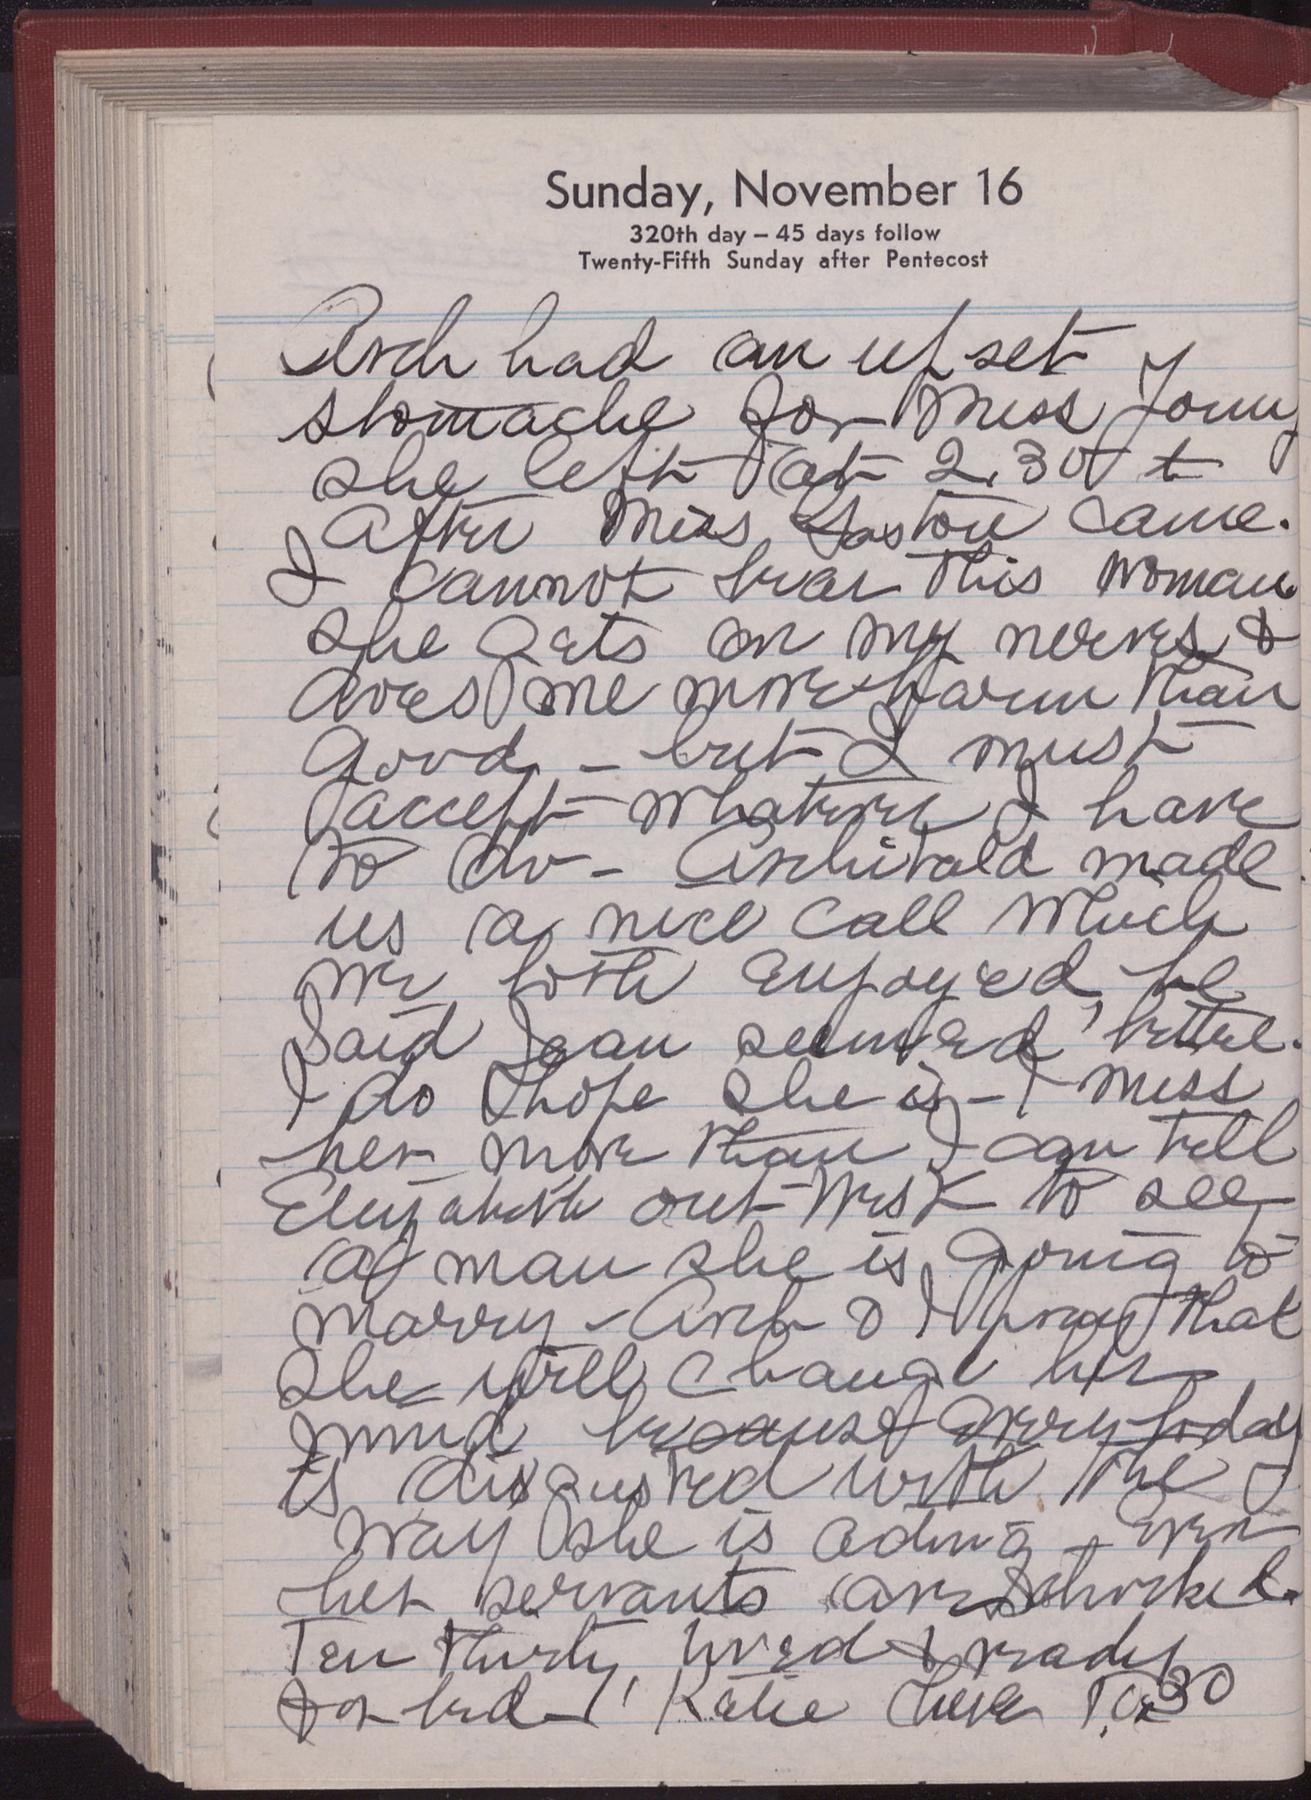 Sunday, November 16
320th day – 45 days follow
Twenty-Fifth Sunday after Pentecost
Arch had an upset
stomache for Miss Young
she left at 2.30
after Miss Gaston came.
I cannot bear this woman
she gets on my nerves &
does me more harm than
good, – but I must
accept whatever I have
to do – Archibald made
us a nice call which
we both enjoyed, he
said Jean seemed better.
I do hope she is – I miss
her more than I can tell
Elizabeth out West to see
a man she is going to
marry – Arch & I pray that
she will change her
mind because everybody
is disgusted with the
way she is acting – Even
her servants are schocked.
Ten thirty, tired & ready
for bed – Katie here